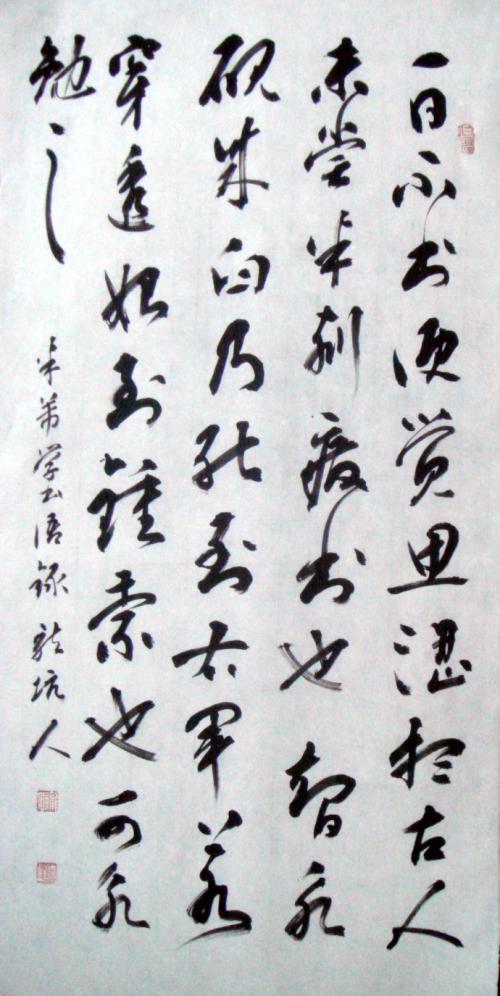 一日不书便觉思涩想古人
未尝半刻废书也智永
砚成臼乃能到右军若
穿透始到鍾索也可永
勉之
米芾学书语録龙坑人